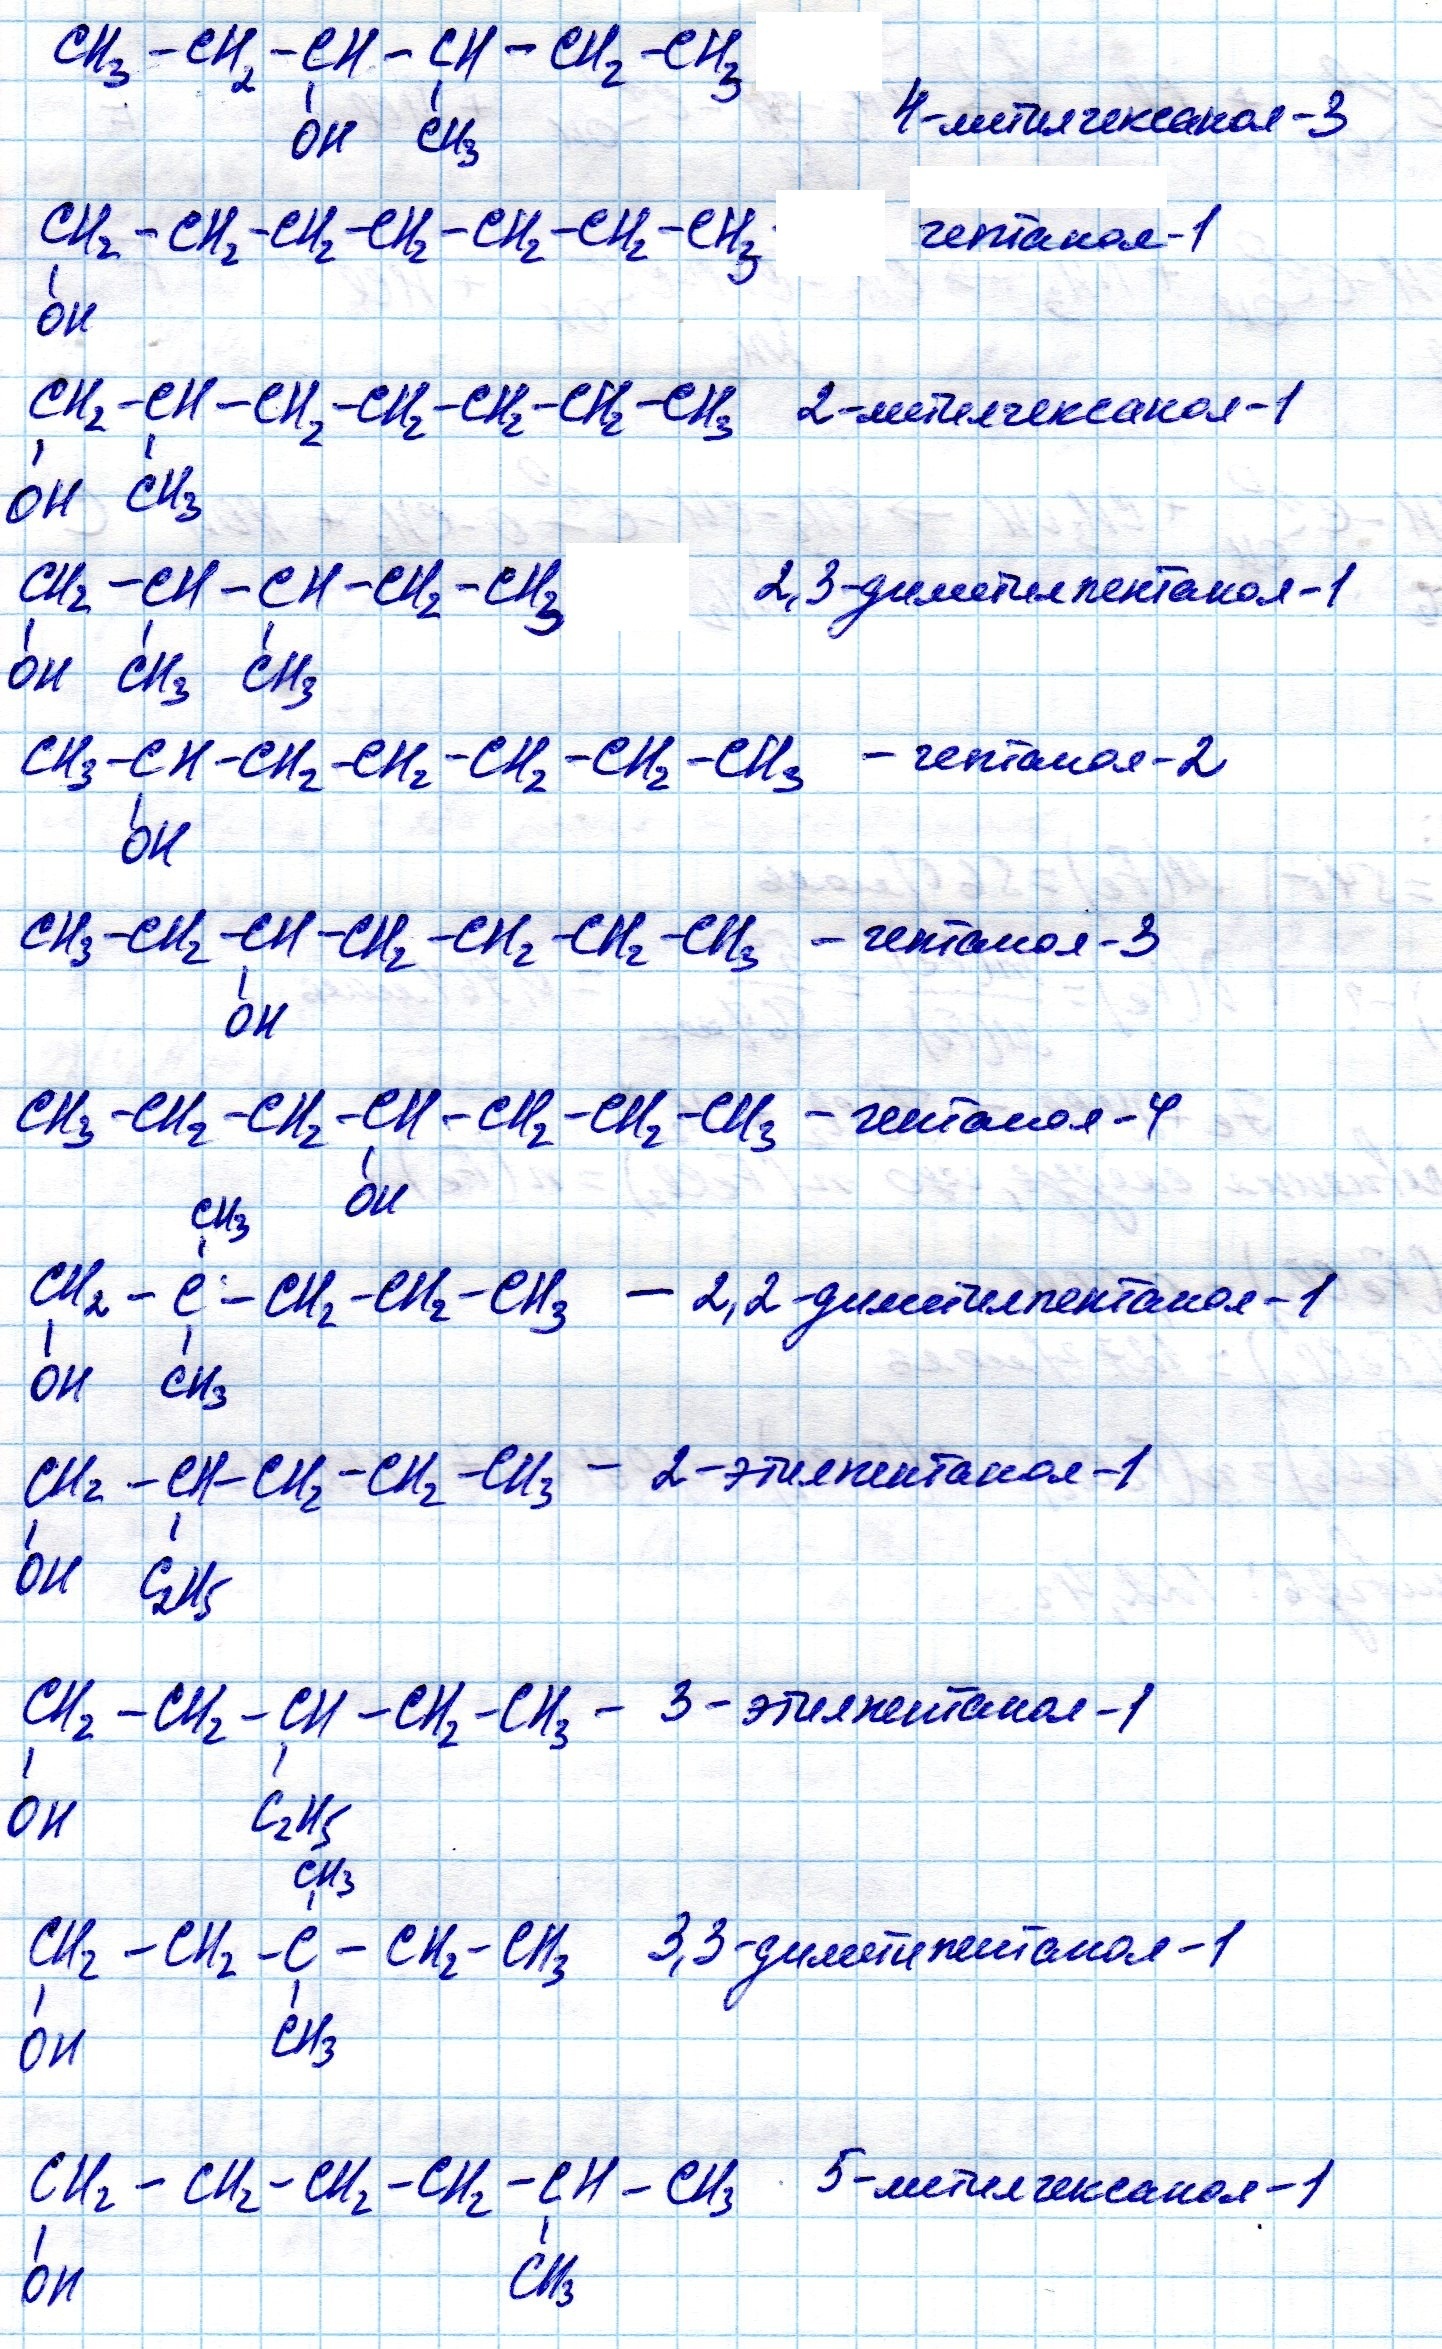 CH3 - CH2 - CH - CH - CH2 - CH3
OH CH3
4-метилгексанол-3
CH2 - CH2 - CH2 - CH2 - CH2 - CH2 - CH3 гептанол-1
OH
CH2 - CH - CH2 - CH2 - CH2 - CH2 - CH3 2-метилгексанол-1
OH CH3
CH2 - CH - CH - CH2 - CH3 2,3-диметилпентанол-1
OH CH3 CH3
CH3 - CH - CH2 - CH2 - CH2 - CH2 - CH3 - гептанол-2
OH
CH3 - CH2 - CH - CH2 - CH2 - CH2 - CH3 - гептанол-3
OH
CH3 - CH2 - CH2 - CH - CH2 - CH2 - CH3 - гептанол-4
OH
CH3
CH2 - C - CH2 - CH2 - CH3 - 2,2-диметилпентанол-1
OH CH3
CH2 - CH - CH2 - CH2 - CH3 - 2-этилпентанол-1
OH C2H5
CH2 - CH2 - CH - CH2 - CH3 - 3-этилпентанол-1
OH C2H5
CH3
CH2 - CH2 - C - CH2 - CH3 3,3-диметипентанол-1
OH CH3
CH2 - CH2 - CH2 - CH2 - CH - CH3 5-метилгексанол-1
OH CH3